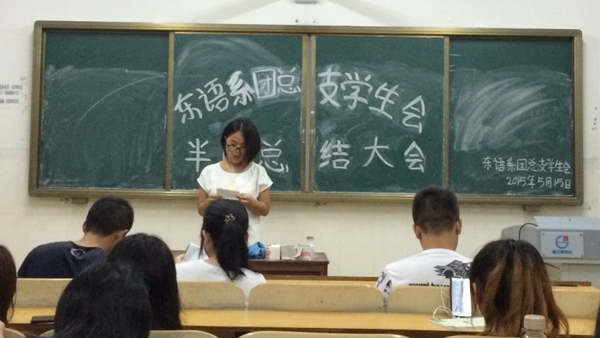 东语系团总支学生会
半 总结大会
东语系团总支学生会
2015年5月15日